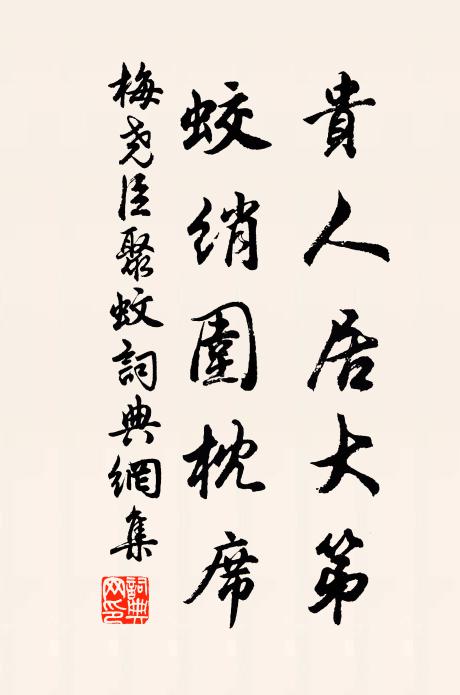 貴人居大第
蛟綃圍枕席
梅尧臣聚蚊詞典網集
詞典网印